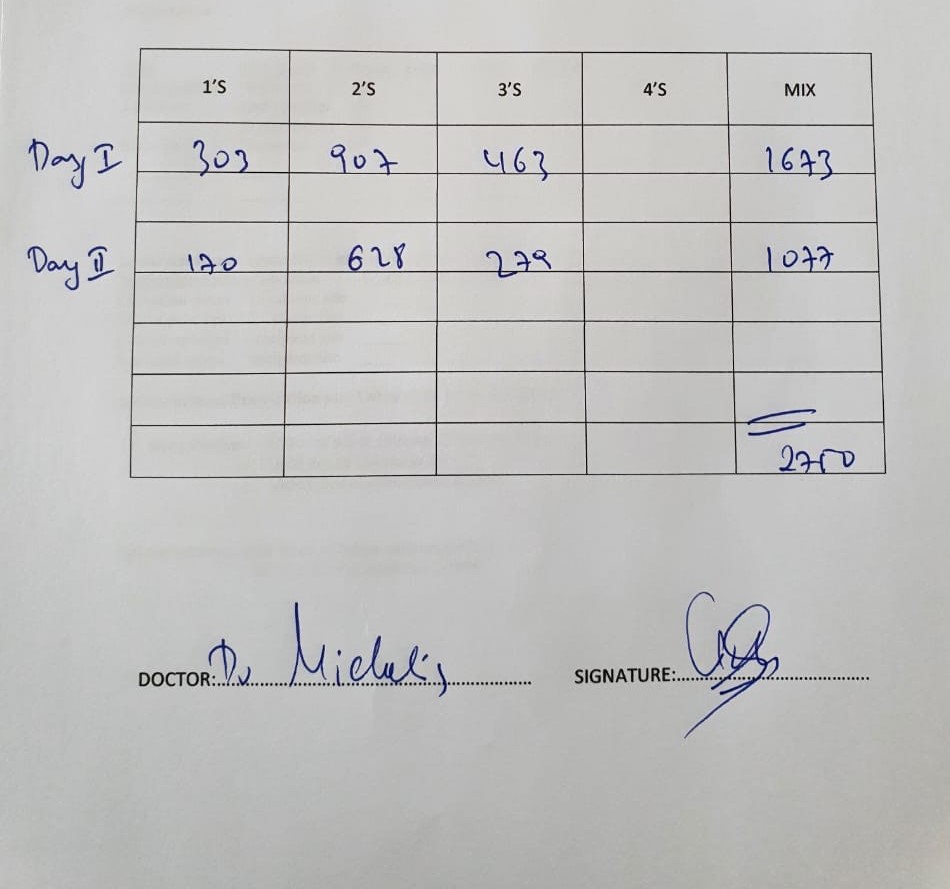 1'S 2'S 3'S 4'S MIX
Day I 303 907 463 1673
Day II 170 628 279 1077
2750
DOCTOR:..Dr Michelis.......... SIGNATURE:..........